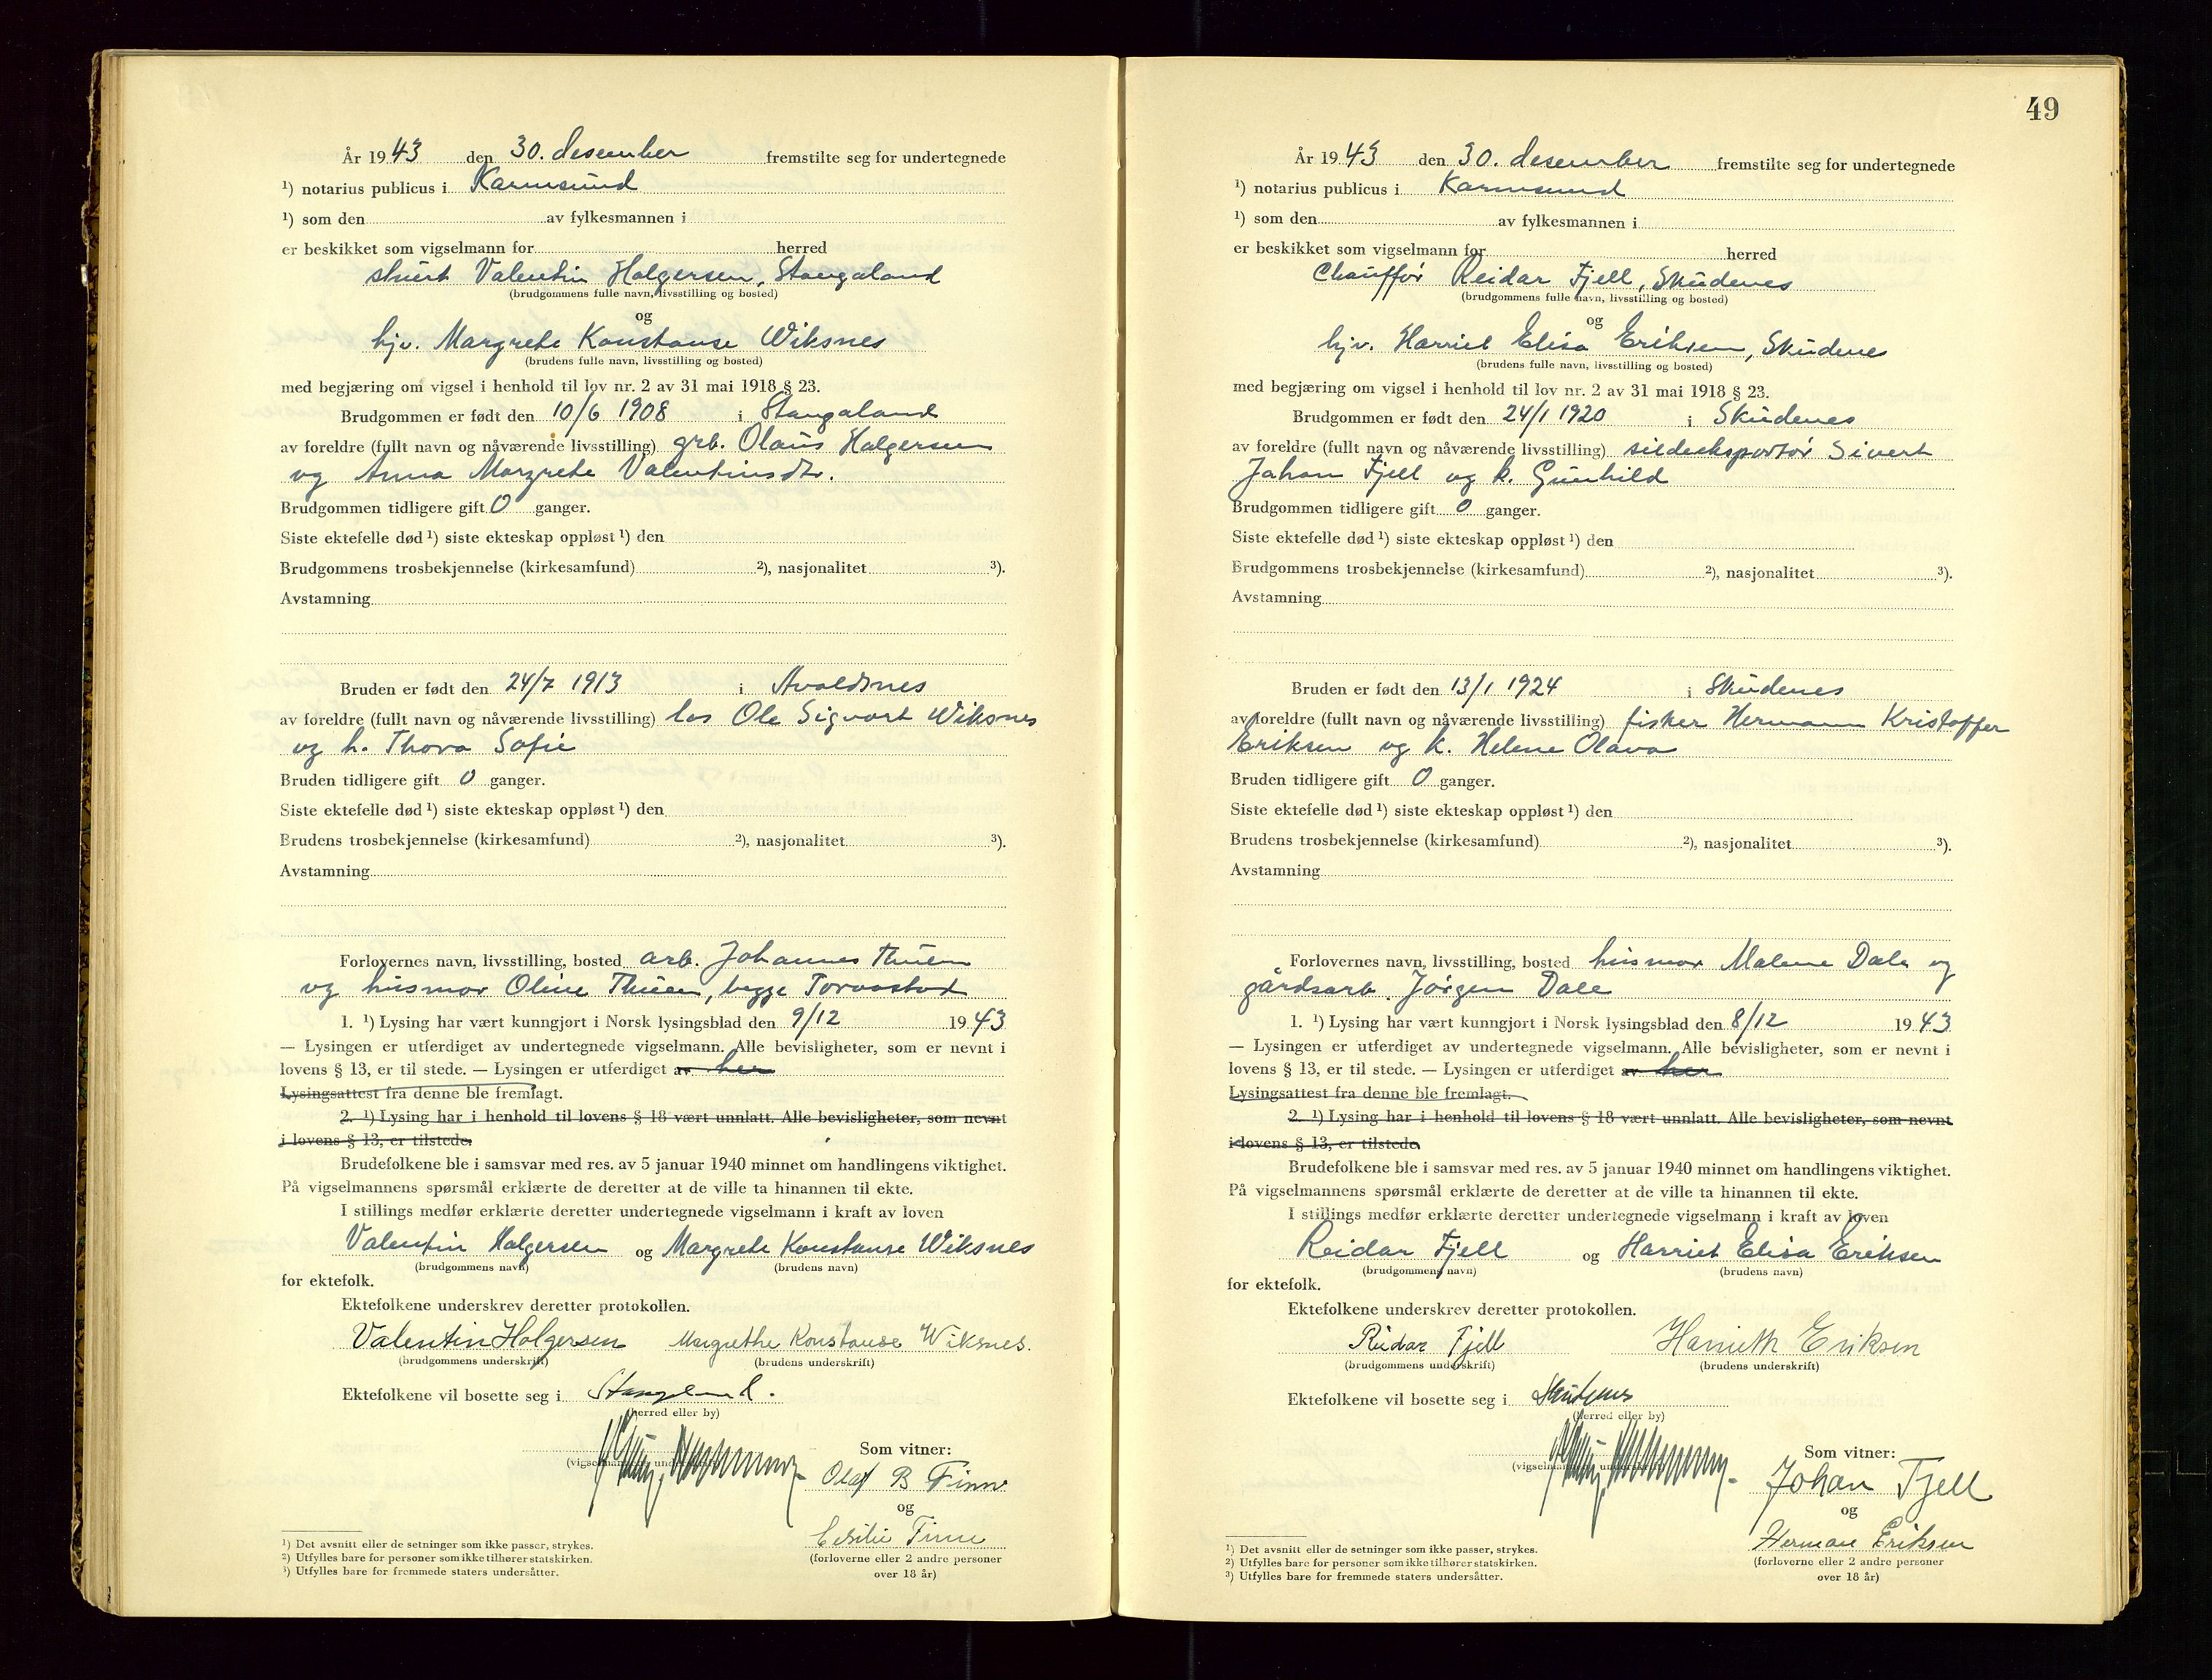 År 1943 den 30. desember fremstilte seg for undertegnede
¹) notarius publicus i Karmsund
¹) som den av fylkesmannen i
er beskikket som vigselmann for herred
stuert Valentin Holgersen, Stangaland
(brudgommens fulle navn, livsstilling og bosted)
og
hjv. Margrete Konstanse Wiksnes
(brudens fulle navn, livsstilling og bosted)
med begjæring om vigsel i henhold til lov nr. 2 av 31 mai 1918 § 23.
Brudgommen er født den 10/6 1908 i Stangaland
av foreldre (fullt navn og nåværende livsstilling) grb. Olaus Halgersen
og Anna Margrete Valentinsdtr.
Brudgommen tidligere gift 0 ganger.
Siste ektefelle død ¹) siste ekteskap oppløst ¹) den
Brudgommens trosbekjennelse (kirkesamfund) ²), nasjonalitet ³).
Avstamning
Bruden er født den 24/7 1913 i Avaldsnes
av foreldre (fullt navn og nåværende livsstilling) los Ole Sigvart Wiksnes
og h. Thora Sofie
Bruden tidligere gift 0 ganger.
Siste ektefelle død ¹) siste ekteskap oppløst ¹) den
Brudens trosbekjennelse (kirkesamfund) ²), nasjonalitet ³).
Avstamning
Forlovernes navn, livsstilling, bosted arb. Johannes Thuen
og husmor Oline Thuen, begge Torvastad
1. ¹) Lysing har vært kunngjort i Norsk lysingsblad den 9/12 1943
— Lysingen er utferdiget av undertegnede vigselmann. Alle bevisligheter, som er nevnt i
lovens § 13, er til stede. — Lysingen er utferdiget av her
Lysingsattest fra denne ble fremlagt.
2. ¹) Lysing har i henhold til lovens § 18 vært unnlatt. Alle bevisligheter, som nevnt
i lovens § 13, er tilstede.
Brudefolkene ble i samsvar med res. av 5 januar 1940 minnet om handlingens viktighet.
På vigselmannens spørsmål erklærte de deretter at de ville ta hinannen til ekte.
I stillings medfør erklærte deretter undertegnede vigselmann i kraft av loven
Valentin Halgersen og Margrete Konstanse Wiksnes
(brudgommens navn) (brudens navn)
for ektefolk.
Ektefolkene underskrev deretter protokollen.
Valentin Holgersen Margrethe Konstanse Wiksnes.
(brudgommens underskrift) (brudens underskrift)
Ektefolkene vil bosette seg i Stangeland.
(herred eller by)
Som vitner:
Olaf B Finn
og
Cesilie Finne
(forloverne eller 2 andre personer
over 18 år)
¹) Det avsnitt eller de setninger som ikke passer, strykes.
²) Utfylles bare for personer som ikke tilhører statskirken.
³) Utfylles bare for fremmede staters undersåtter.
49
År 1943 den 30. desember fremstilte seg for undertegnede
¹) notarius publicus i Karmsund
¹) som den av fylkesmannen i
er beskikket som vigselmann for herred
Chauffør Reidar Fjell, Skudenes
(brudgommens fulle navn, livsstilling og bosted)
og
hjv. Harriet Elisa Eriksen, Skudenes
(brudens fulle navn, livsstilling og bosted)
med begjæring om vigsel i henhold til lov nr. 2 av 31 mai 1918 § 23.
Brudgommen er født den 24/1 1920 i Skudenes
av foreldre (fullt navn og nåværende livsstilling) sildeeksportør Sivert
Johan Fjell og k. Gunhild
Brudgommen tidligere gift 0 ganger.
Siste ektefelle død ¹) siste ekteskap oppløst ¹) den
Brudgommens trosbekjennelse (kirkesamfund) ²), nasjonalitet ³).
Avstamning
Bruden er født den 13/1 1924 i Skudenes
av foreldre (fullt navn og nåværende livsstilling) fisker Hermann Kristoffer
Eriksen og k. Helene Olava
Bruden tidligere gift 0 ganger.
Siste ektefelle død ¹) siste ekteskap oppløst ¹) den
Brudens trosbekjennelse (kirkesamfund) ²), nasjonalitet ³).
Avstamning
Forlovernes navn, livsstilling, bosted husmor Malene Dale og
gårdsarb. Jørgen Dale
1. ¹) Lysing har vært kunngjort i Norsk lysingsblad den 8/12 1943
— Lysingen er utferdiget av undertegnede vigselmann. Alle bevisligheter, som er nevnt i
lovens § 13, er til stede. — Lysingen er utferdiget av her
Lysingsattest fra denne ble fremlagt.
2. ¹) Lysing har i henhold til lovens § 18 vært unnlatt. Alle bevisligheter, som nevnt
i lovens § 13, er tilstede.
Brudefolkene ble i samsvar med res. av 5 januar 1940 minnet om handlingens viktighet.
På vigselmannens spørsmål erklærte de deretter at de ville ta hinannen til ekte.
I stillings medfør erklærte deretter undertegnede vigselmann i kraft av loven
Reidar Fjell og Harriet Elisa Eriksen
(brudgommens navn) (brudens navn)
for ektefolk.
Ektefolkene underskrev deretter protokollen.
Reidar Fjell Harrieth Eriksen
(brudgommens underskrift) (brudens underskrift)
Ektefolkene vil bosette seg i Skudenes
(herred eller by)
Som vitner:
Johan Fjell
og
Herman Eriksen
(forloverne eller 2 andre personer
over 18 år)
¹) Det avsnitt eller de setninger som ikke passer, strykes.
²) Utfylles bare for personer som ikke tilhører statskirken.
³) Utfylles bare for fremmede staters undersåtter.